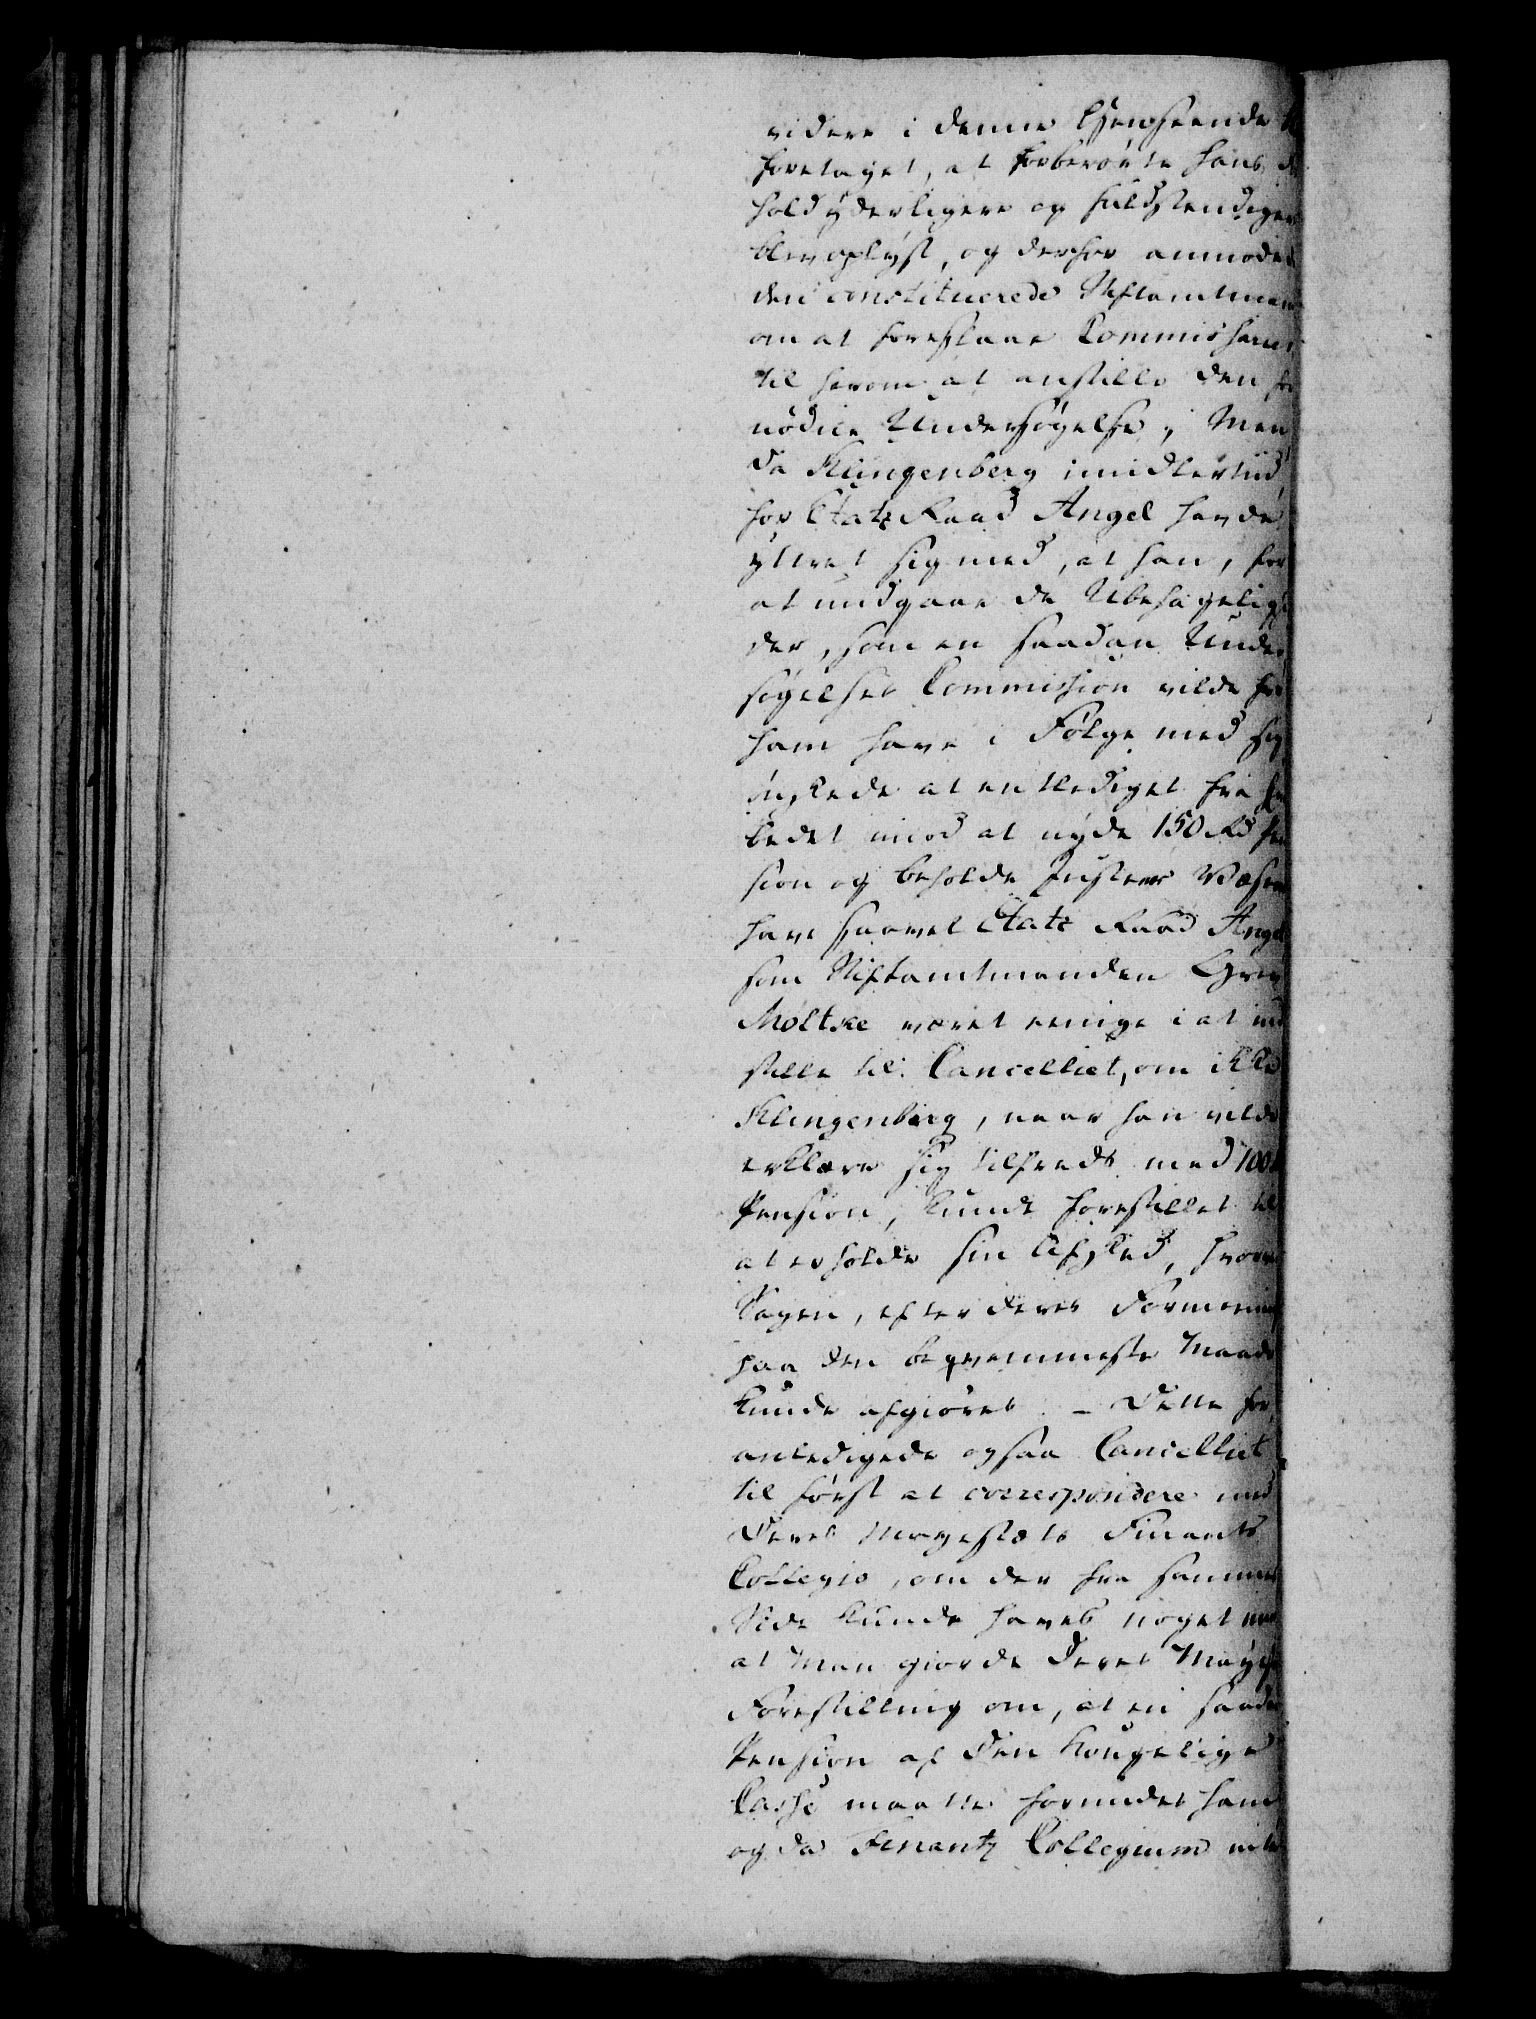 videre i denne Henseende
foretaget, at forberørte hans
hold yderligere og fuldstendiger
blev oplyst, og derfor anmodede
den constituerede Stiftamtmand
om at foreslaae Commissarier
til herom at anstille den for
nødne Undersøgelse; Men
da Klingenberg imidlertiid
for Etats Raad Angel havde
yttret sig med, at han, for
at undgaae de Ubehagelighe
der, som en saadan Under
søgelses Commission vilde for
ham have i Følge med sig
ønskede at entlediget fra Em
bedet imod at nyde 150 Rd Pen
sion og beholde Justeer Væsenet
have saavel Etats Raad Angel
som Stiftamtmanden Grev
Moltke været eenige i at ind
stille til Cancelliet, om ikke
Klingenberg, naar han vilde
erklære sig tilfreds med 100
Pension, kunde forestillet til
at erholde sin Afsked, hvorved
Sagen, efter deres Formening
paa den beqvemmeste Maade
kunde afgiøres. - Dette for
anledigede ogsaa Cancelliet
til først at correspondere med
Deres Mayestæts Finants
Collegio, om der fra samme
Side kunde haves noget imod
at Man giorde Deres Mayst
Forestilling om, at en saadan
Pension af den Kongelige
Casse maatte forundes ham
og da Finantz Collegium